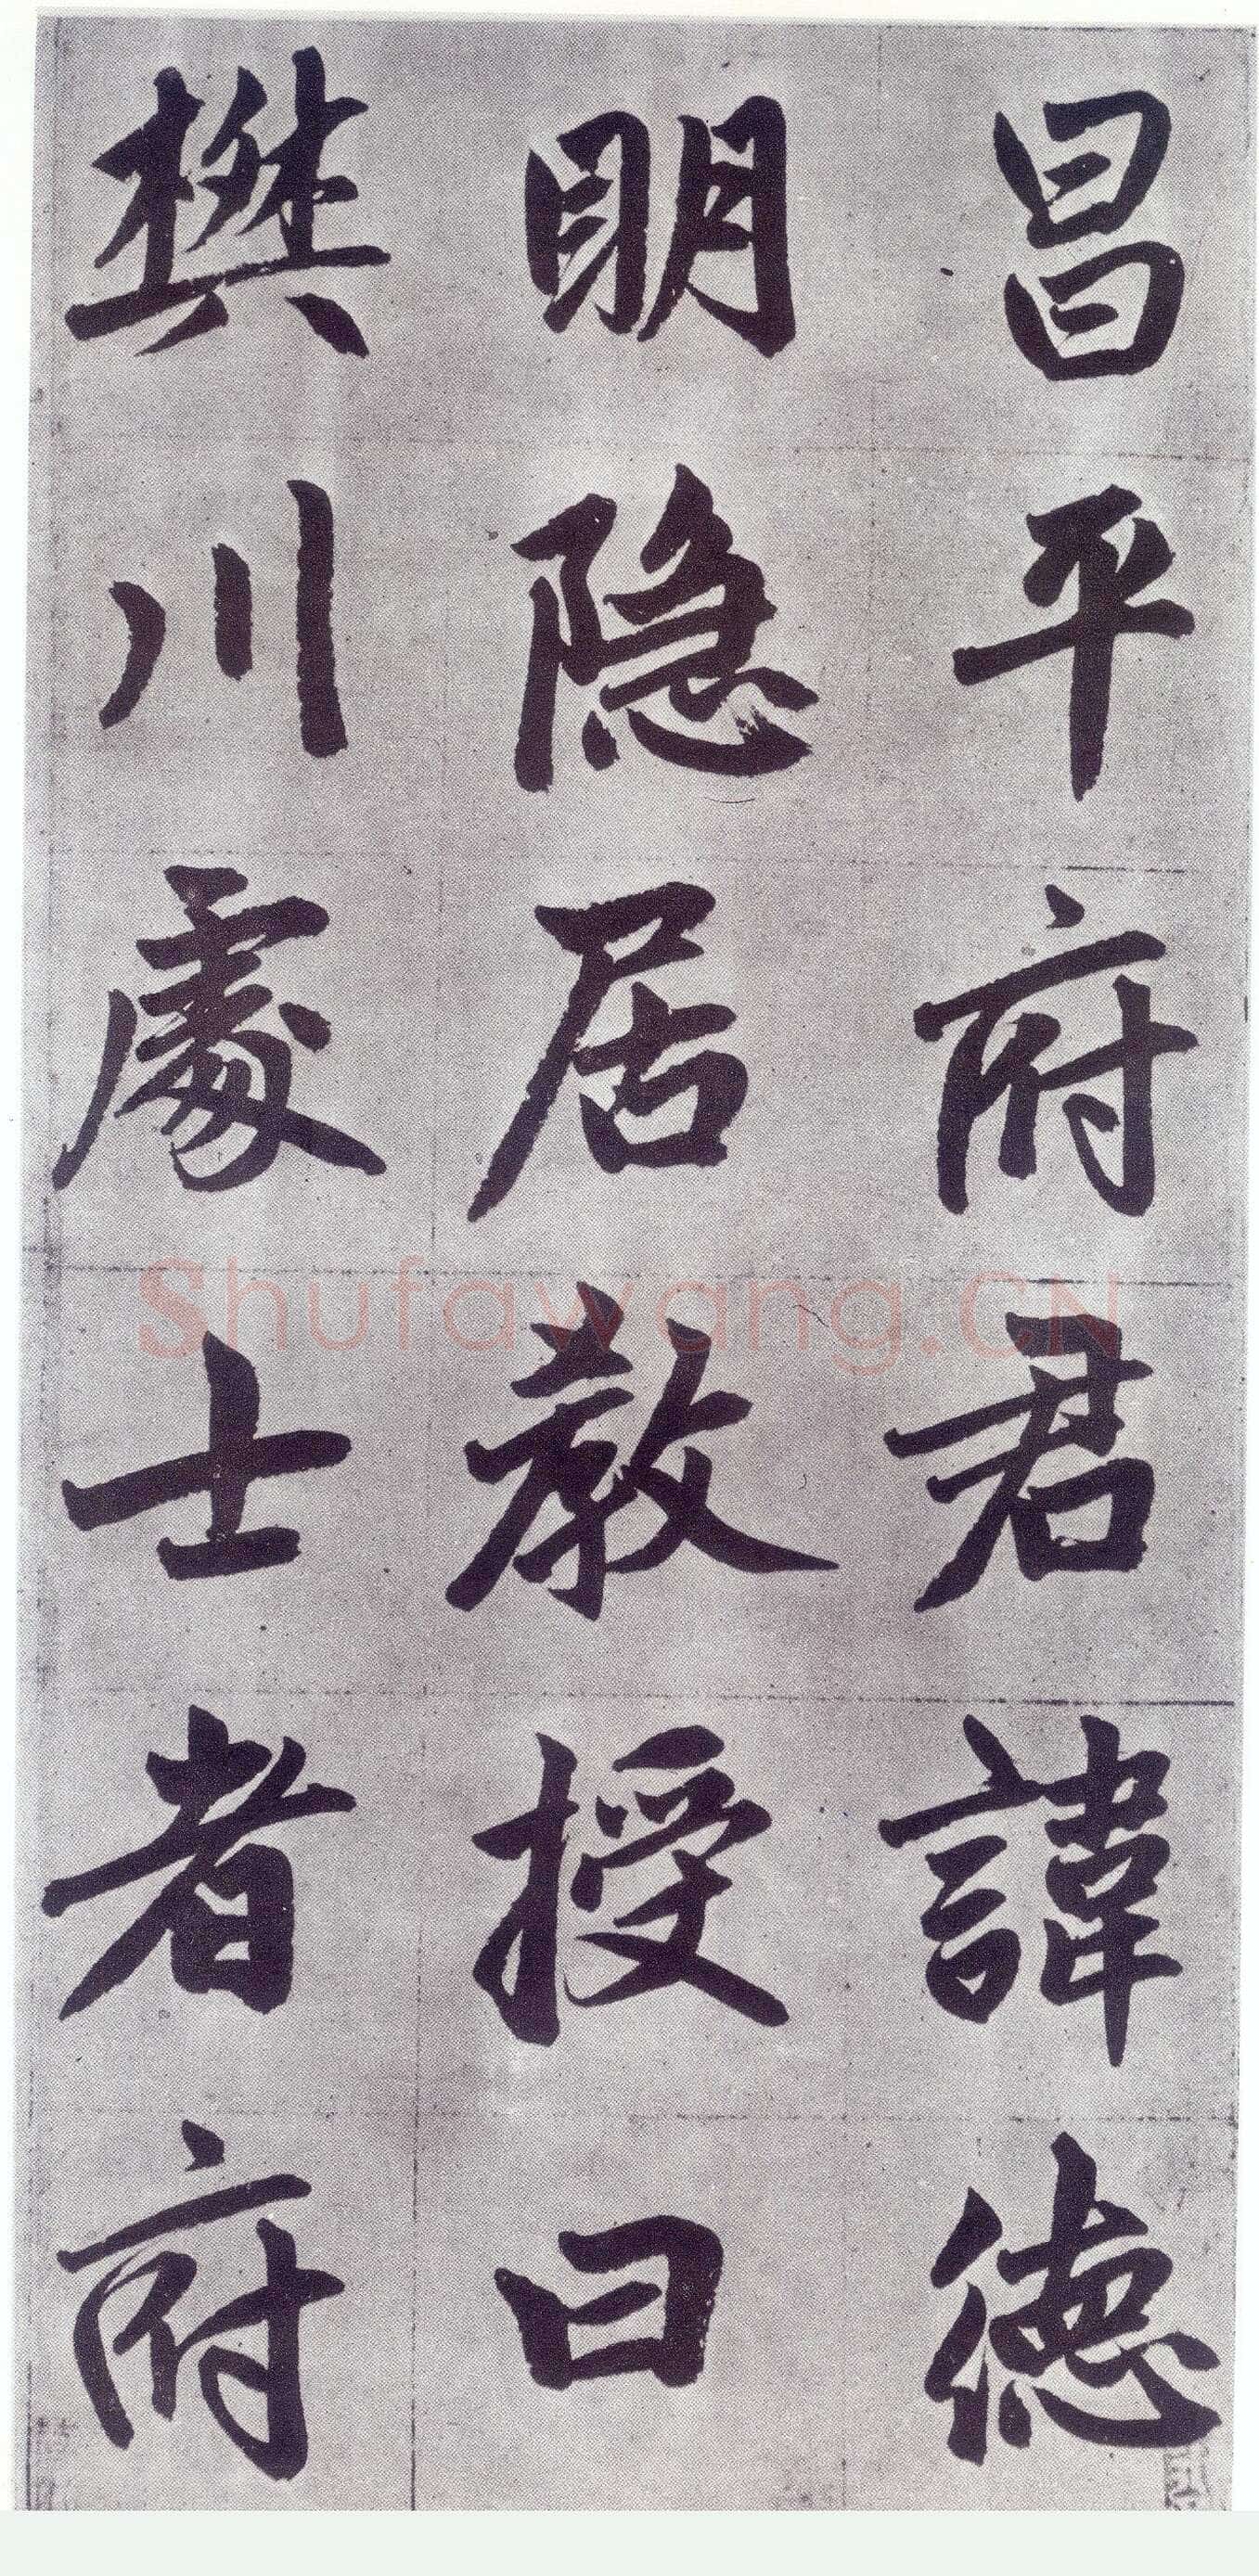 昌平府君諱德
明隐居教授曰
樊川處士者府
Shufawang.CN